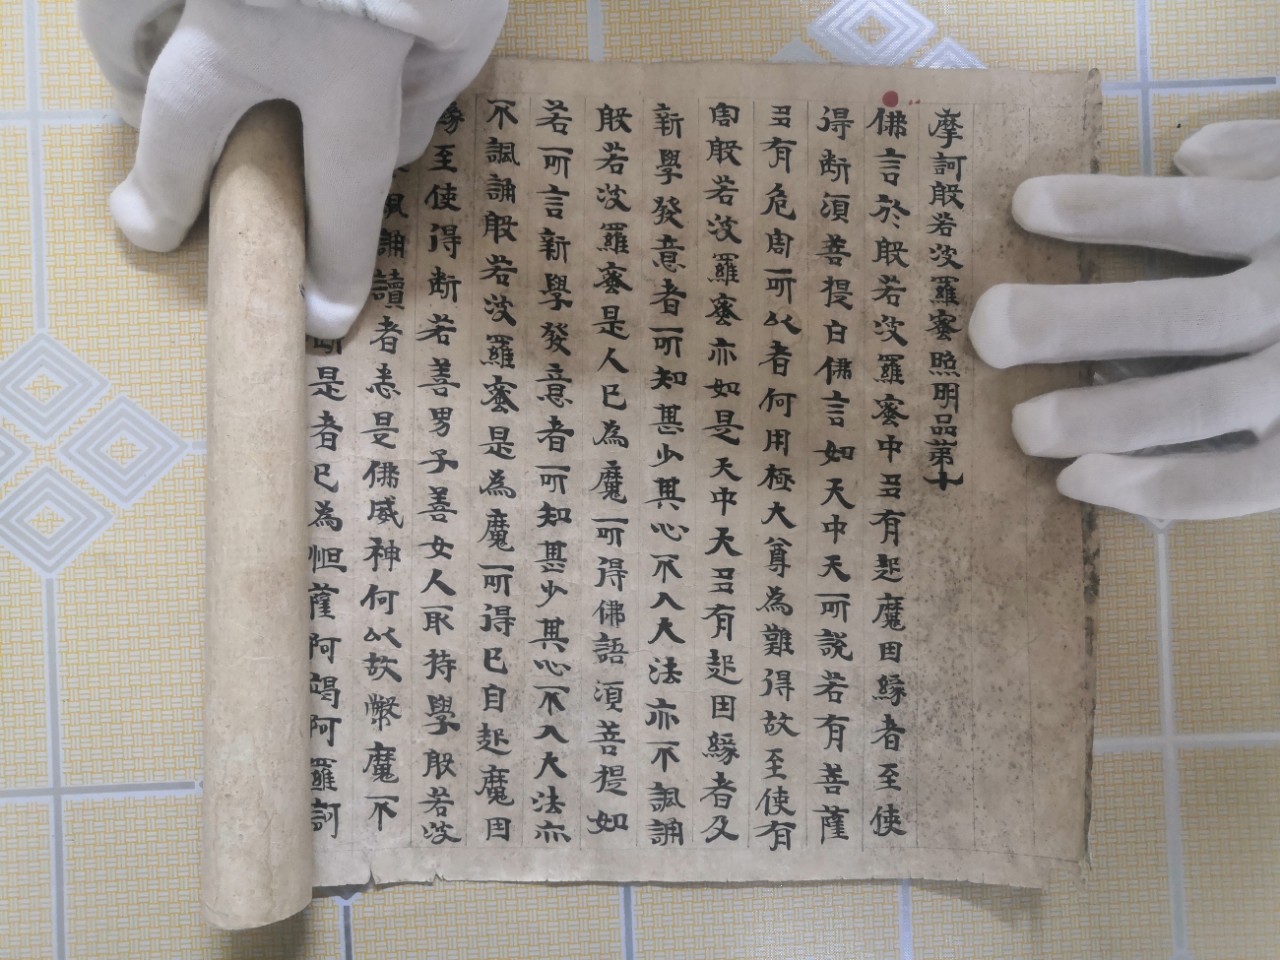 摩訶般若波羅蜜照明品第十
佛言於般若波羅蜜中多有起魔因緣者至使
得断須菩提白佛言如天中天所說若有菩薩
多有危害所以者何用極大尊為難得故至使有
害般若波羅蜜亦如是天中天多有起因緣者及
新學發意者所知甚少其心不入大法亦不諷誦
般若波羅蜜是人已為魔所得佛語須菩提如
若所言新學發意者所知甚少其心不入大法亦
不諷誦般若波羅蜜是為魔所得已自起魔因
緣至使得断若善男子善女人取持學般若波
諷誦讀者悉是佛威神何以故弊魔不
断是者已為怛薩阿竭阿羅訶